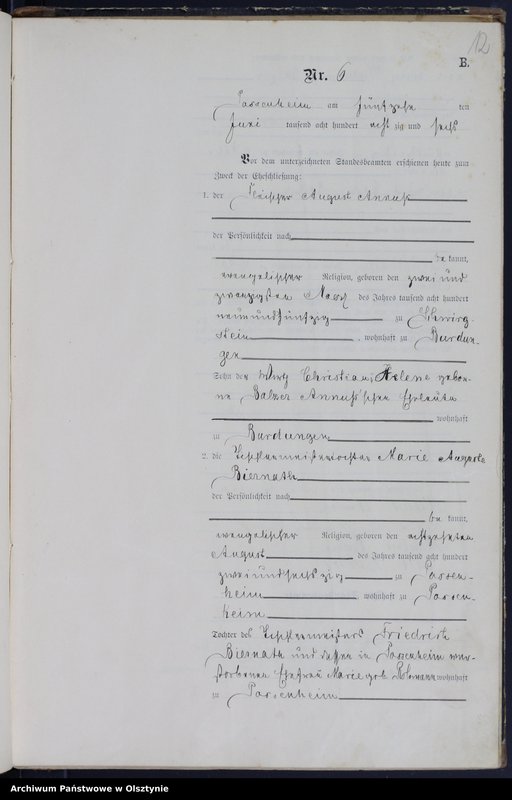 12
B.
Nr. 6
Passenheim am fünfzehn ten
Juni tausend acht hundert acht zig und sechs
Vor dem unterzeichneten Standesbeamten erschienen heute zum
Zweck der Eheschließung:
1. der Fleischer August Annuß
der Persönlichkeit nach
be kannt,
evangelischer Religion, geboren den zwei und
zwanzigsten März des Jahres tausend acht hundert
neunundfünfzig zu
stein, wohnhaft zu Burdun-
gen
Sohn der Wirth Christian, Helene gebor-
ne Balzer Annuß'schen Eheleute
wohnhaft
zu Burdungen
2. die Töpfermeistertochter Marie Auguste
Biernath
der Persönlichkeit nach
be kannt,
evangelischer Religion, geboren den achtzehnten
August des Jahres tausend acht hundert
zweiundsechs zig zu Passen-
heim, wohnhaft zu Passen-
heim
Tochter des Töpfermeisters Friedrich
Biernath und dessen in Passenheim ver-
storbenen Ehefrau Marie geb. wohnhaft
zu Passenheim
Archiwum Państwowe w Olsztynie